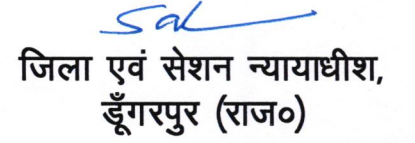 Sd
जिला एवं सेशन न्यायाधीश,
डूँगरपुर (राज०)